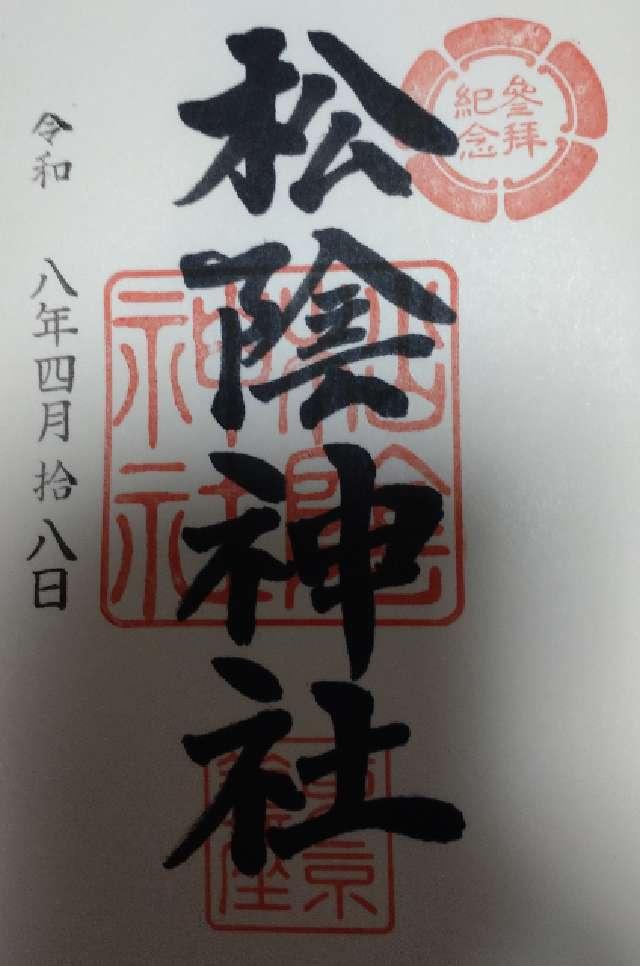 參拜
紀念
松陰神社
松陰
神社
東京
鎮座
令和 八年四月拾八日